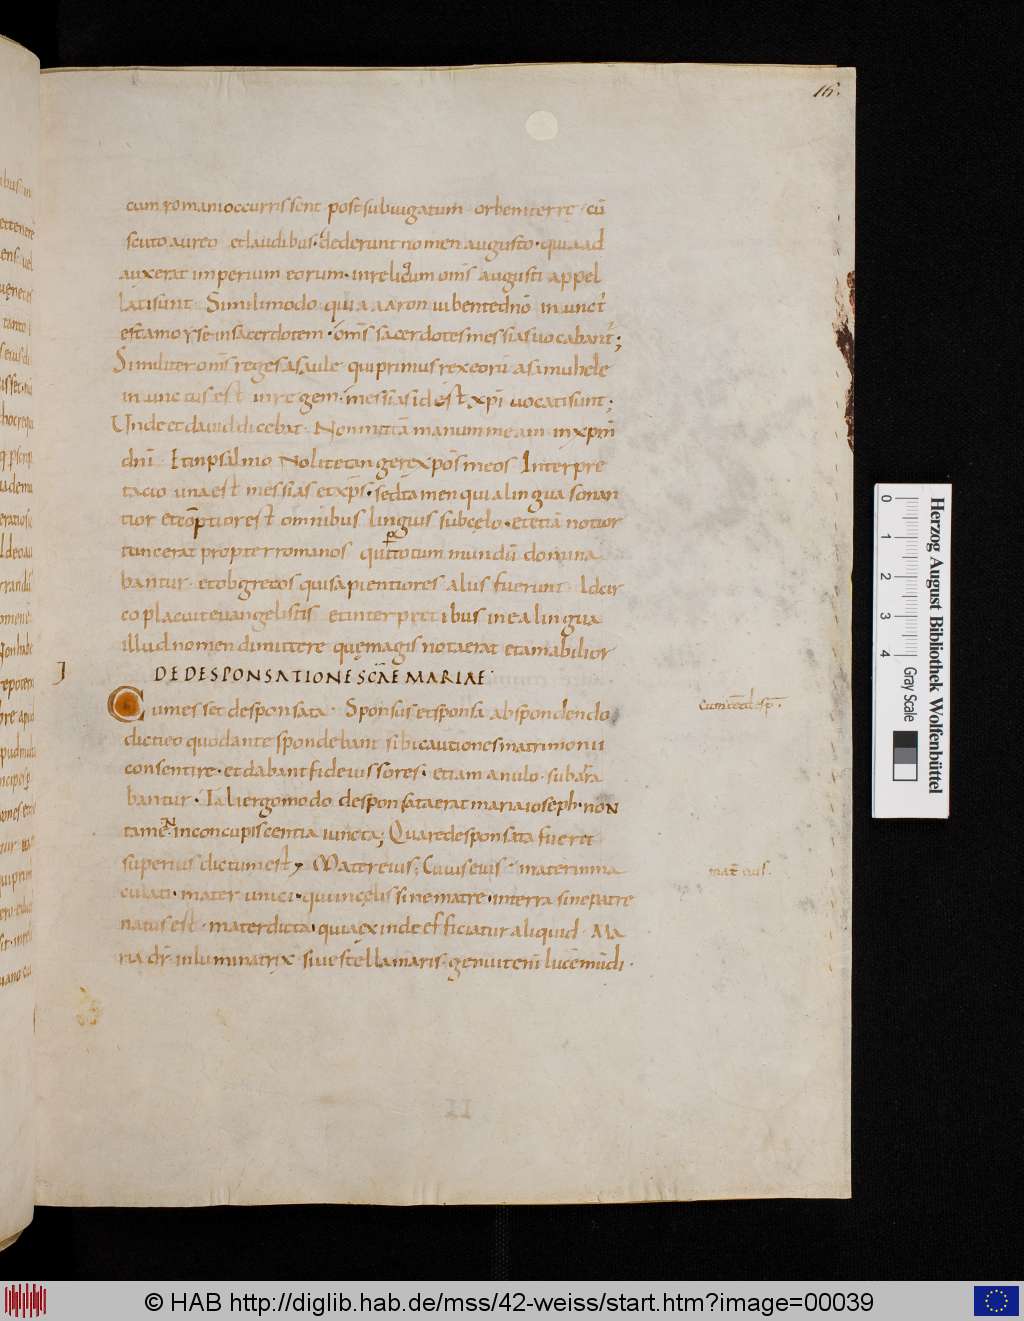 16.
cum romani occurrissent post subiugatum orbem terrę · cū
scuto aureo et laudibus · dederunt nomen augusto · quia ad
auxerat imperium eorum · inreliquum om̄s augusti appel
latisunt Simili modo quia aaron iubente dnō inunct'
est a moyse insacerdotem · om̄s sacerdotes messias uocabant';
Similiter om̄s reges asaule qui primus rex eorū asamuhele
inunctus est inregem · messias id est xp̄i uocati sunt;
Unde et dauid dicebat · Non mittā manum meam in xpm̄
dnī · Et inpsalmo Nolite tangere xpōs meos Interpre
tacio una est messias et xp̄s · sed tamen qui alingua sonan
tior et cōptior est omnibus linguis sub cęlo · et etiā notior
tunc erat propter romanos qui totum mundū domina
bantur · et ob grecos qui sapientiores aliis fuerunt · Idcir
co placuit euangelistis et interpretibus in ea lingua
illud nomen dimittere quę magis nota erat et amabilior
DE DESPONSATIONE SCĀE MARIAE
I
Cum esset desponsata · Sponsus et sponsa ab spondendo
dicti eo quod ante spondebant sibi cautiones matrimonii
consentire · et dabant fideiussores · etiam anulo · subarra
bantur · Tali ergo modo desponsata erat maria ioseph · non
tamen in concupiscentia iuncta; Quare desponsata fueret
superius dictum est, Mater eius; Cuius eius · mater inma
culati · mater unici · qui in cęlis sine matre · in terra sine patre
natus est · mater dicta · quia ex inde efficiatur aliquid · Ma
ria dr̄ inluminatrix siue stella maris · genuit enī lucē mūdi ·
cum eēt desp̄ ·
mat̄ eius ·
0 1 2 3 4
Herzog August Bibliothek Wolfenbüttel
Gray Scale
© HAB http://diglib.hab.de/mss/42-weiss/start.htm?image=00039